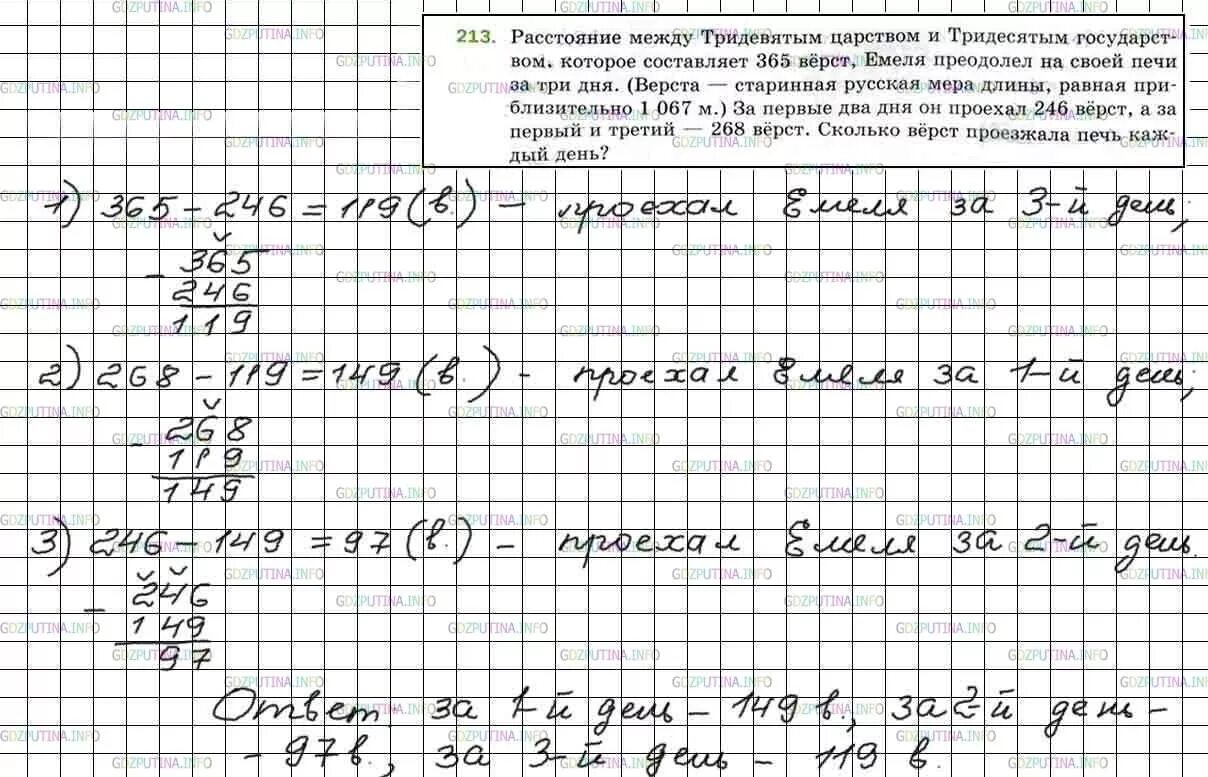 213. Расстояние между Тридевятым царством и Тридесятым государст-
вом, которое составляет 365 вёрст, Емеля преодолел на своей печи
за три дня. (Верста — старинная русская мера длины, равная при-
близительно 1 067 м.) За первые два дня он проехал 246 вёрст, а за
первый и третий — 268 вёрст. Сколько вёрст проезжала печь каж-
дый день?
1) 365 - 246 = 119 (в.) - проехал Емеля за 3-й день;
- 365
246
119
2) 268 - 119 = 149 (в.) - проехал Емеля за 1-й день;
- 268
119
149
3) 246 - 149 = 97 (в.) - проехал Емеля за 2-й день.
- 246
149
97
Ответ за 1-й день - 149 в., за 2-й день -
- 97 в., за 3-й день - 119 в.
GDZPUTINA.INFO